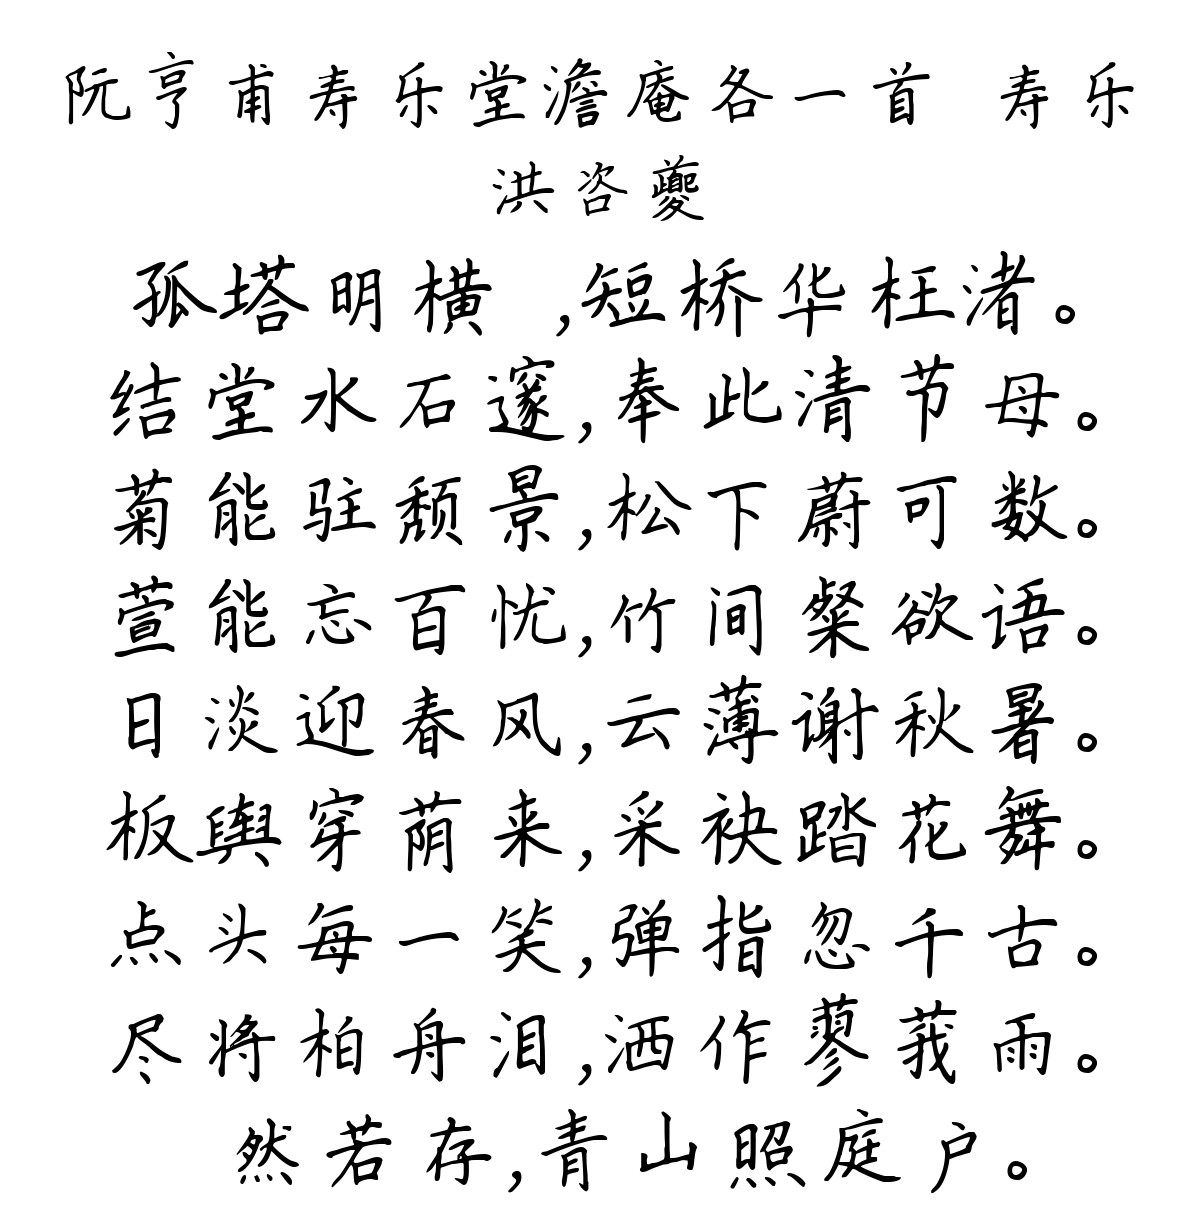 阮亨甫寿乐堂澹庵各一首 寿乐
洪咨夔
孤塔明横 ,短桥华枉渚。
结堂水石邃,奉此清节母。
菊能驻颓景,松下蔚可数。
萱能忘百忧,竹间粲欲语。
日淡迎春风,云薄谢秋暑。
板舆穿荫来,采袂踏花舞。
点头每一笑,弹指忽千古。
尽将柏舟泪,洒作蓼莪雨。
然若存,青山照庭户。